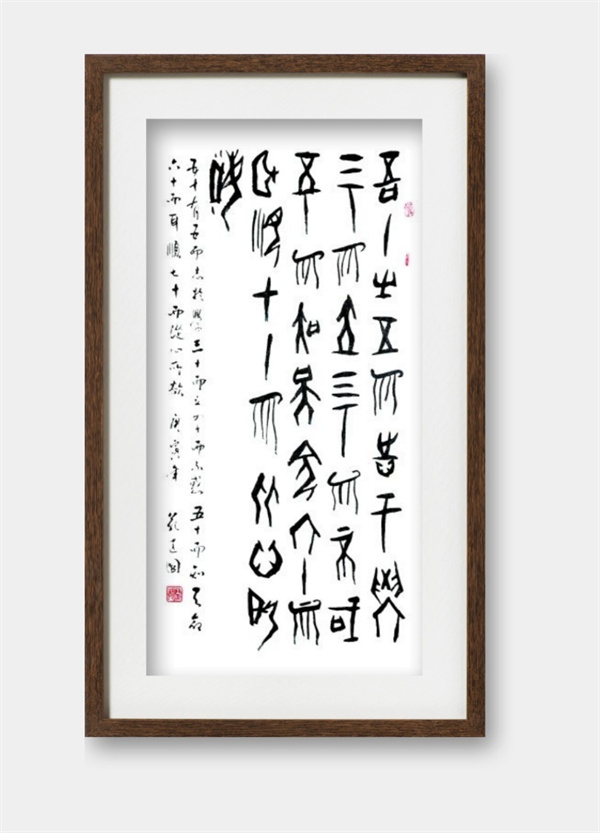 吾十㞢五而志于學
三十而立四十而不惑
五十而知天命六十而
耳順七十而从心所
欲
吾十有五而志於學三十而立四十而不惑五十而知天命
六十而耳順七十而從心所欲 庚寅年